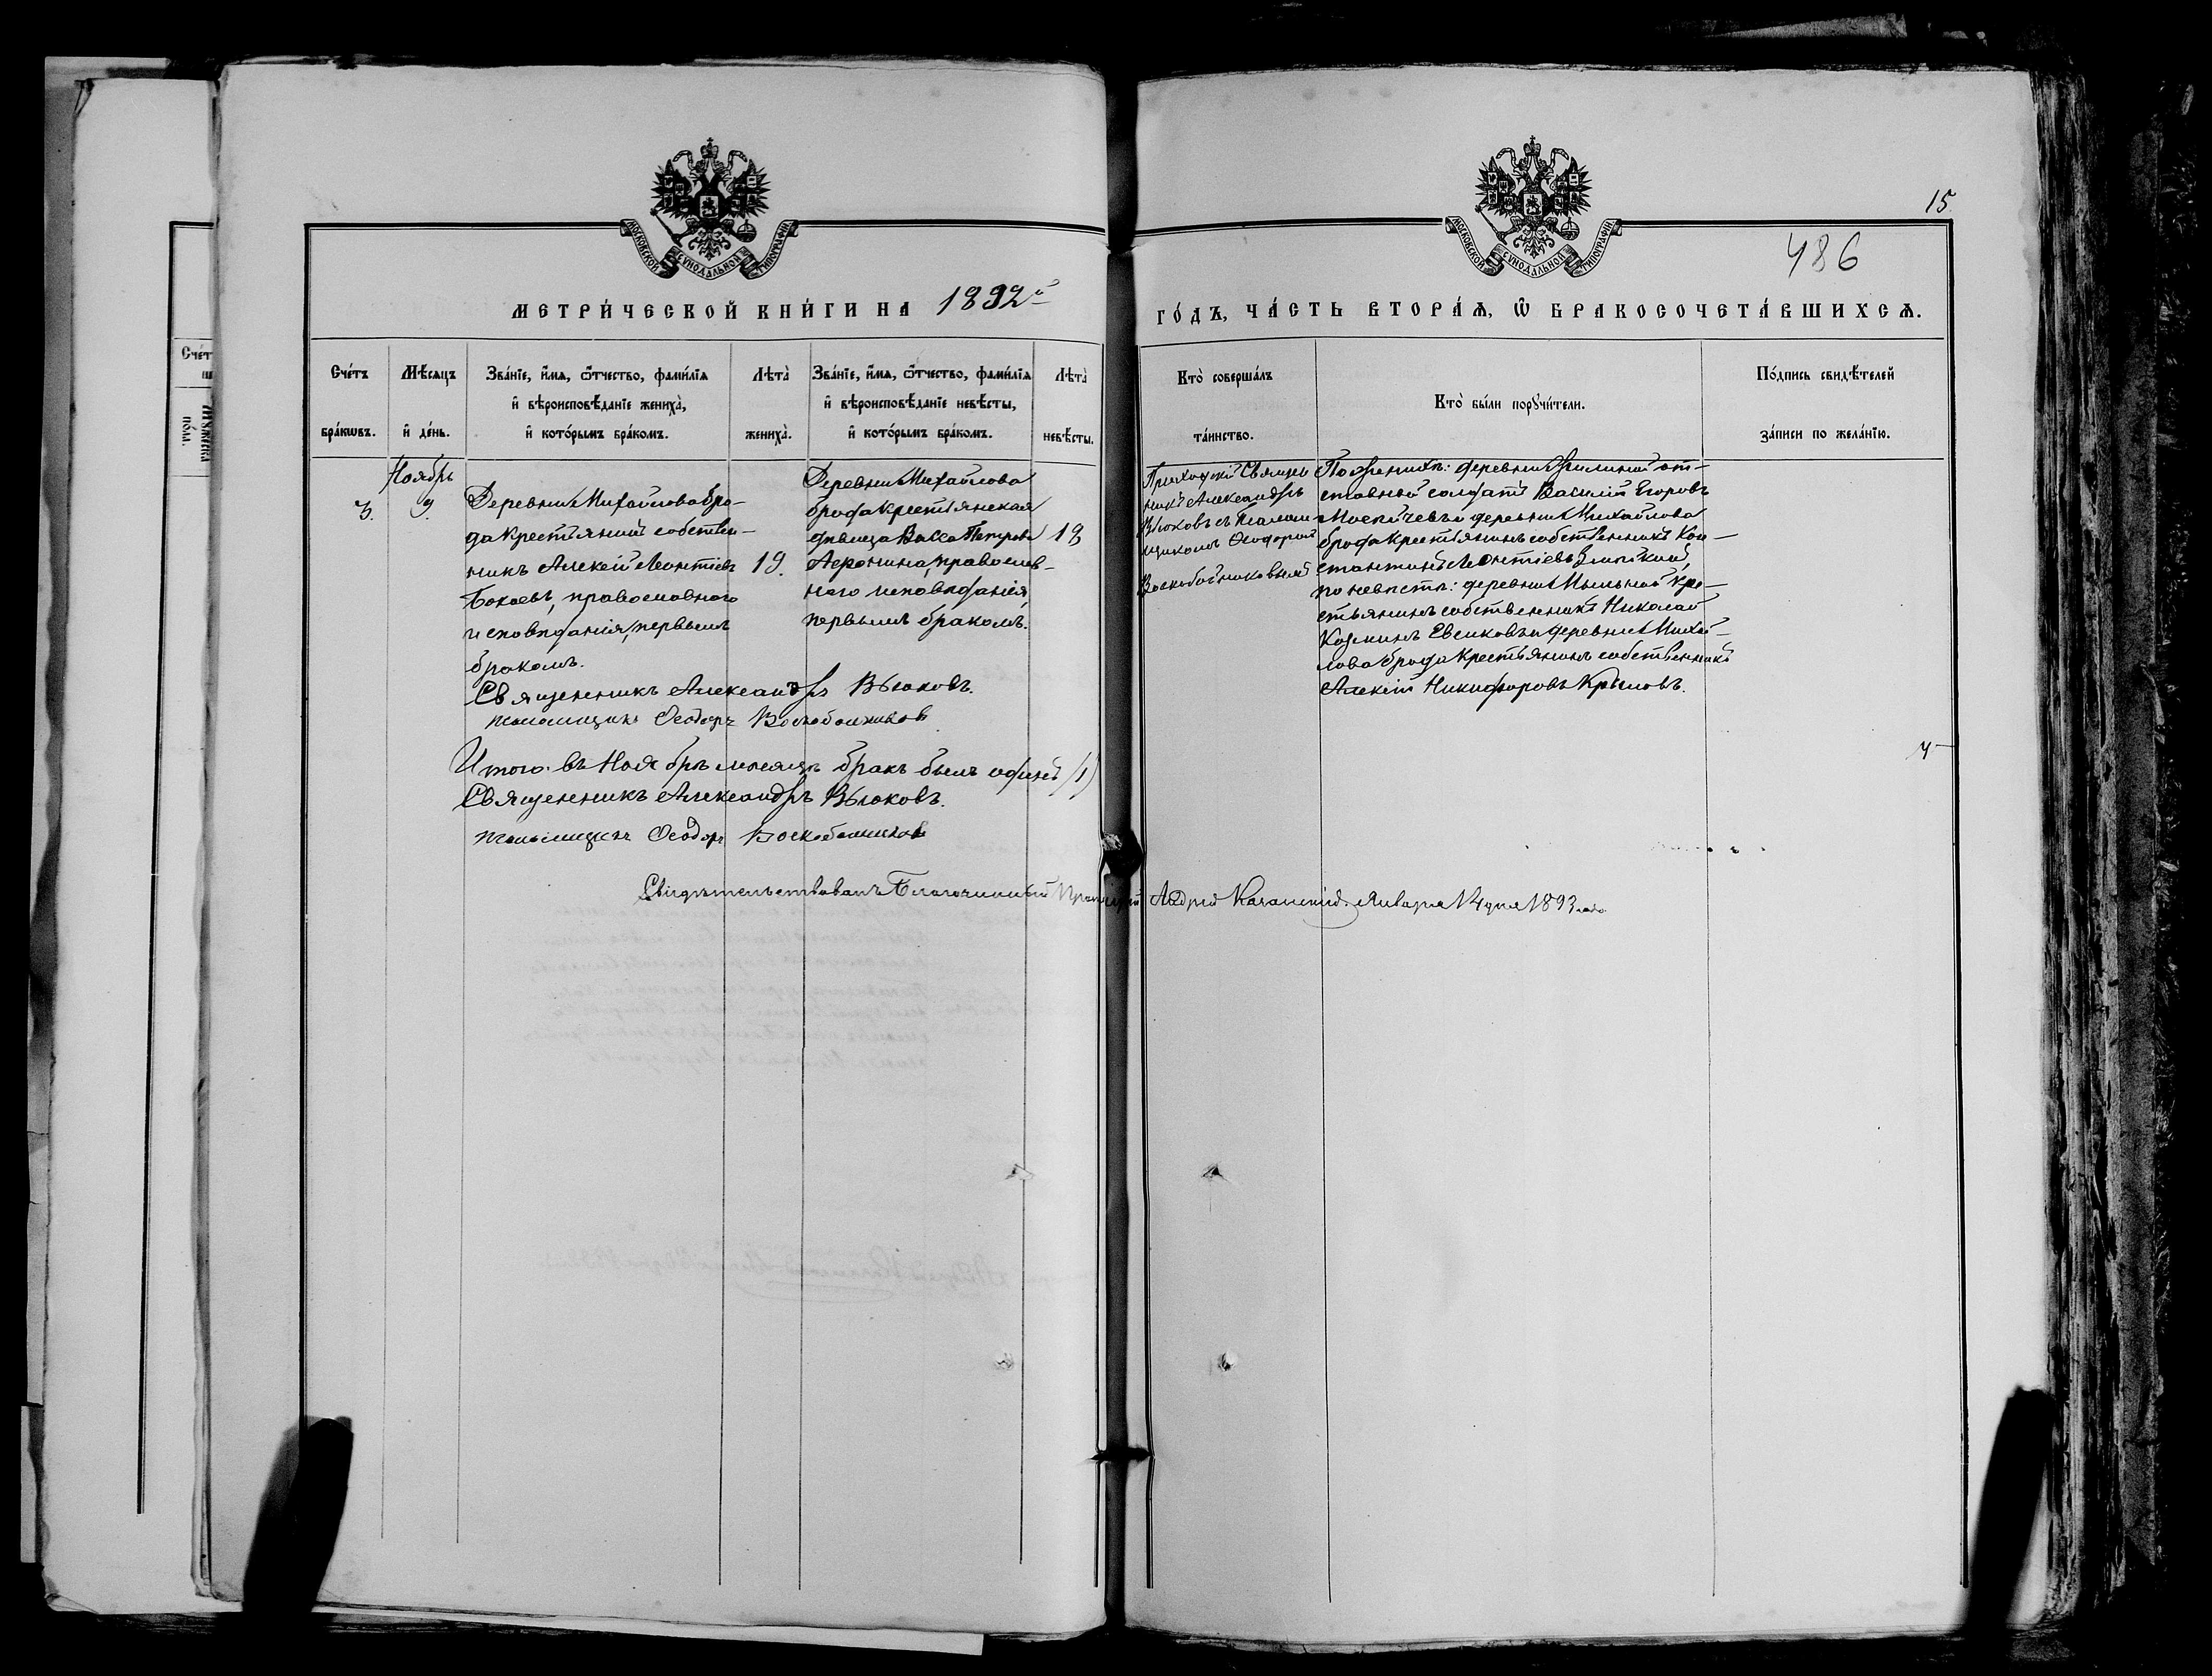 15.
486
МОСКОВСКОЙ СѴНОДАЛЬНОЙ ТИПОГРАФІИ
МОСКОВСКОЙ СѴНОДАЛЬНОЙ ТИПОГРАФІИ
МЕТРИ́ЧЕСКОЙ КНИ́ГИ НА 1892й
ГО́ДЪ, ЧА́СТЬ ВТОРА́Ѧ, Ѽ БРАКОСОЧЕТА́ВШИХСѦ.
Сче́тъ
бра́кѡвъ.
Мѣ́сяцъ
и де́нь.
Зва́нїе, и́мя, ѻ́тчество, фами́лїя
и вѣроисповѣ́данїе жениха̀,
и кото́рымъ бра́комъ.
Лѣта̀
жениха̀.
Зва́нїе, и́мя, ѻ́тчество, фами́лїя
и вѣроисповѣ́данїе невѣ́сты,
и кото́рымъ бра́комъ.
Лѣта̀
невѣ́сты.
Кто̀ соверша́лъ
та́инство.
Кто̀ бы́ли порꙋчи́тели.
По́дпись свидѣ́телей
за́писи по жела́нїю.
3.
Ноябрь
9.
Деревни Михайлова бро-
да крестьянинъ собствен-
никъ Алексѣй Леонтіевъ
Бокаевъ, православнаго
исповѣданія, первымъ
бракомъ.
19.
Деревни Михайлова
брода крестьянская
дѣвица Васса Петрова
православ-
наго исповѣданія,
первымъ бракомъ.
18
Приходскій Священ-
никъ Александръ
Вьюковъ съ Псалом-
щикомъ Ѳеодоромъ
Воскобойниковымъ
По женихѣ: деревни от-
ставной солдатъ Василій Егоровъ
и деревни Михайлова
брода крестьянинъ собственникъ Кон-
стантинъ Леонтіевъ
по невѣстѣ: деревни Мыльной кре-
стьянинъ собственникъ Николай
Козминъ Евсиковъ и деревни Михай-
лова брода крестьянинъ собственникъ
Алексій Никифоровъ Крыловъ.
Священникъ Александръ Вьюковъ.
псаломщикъ Ѳеодоръ Воскобойников
Итого: въ Ноябрѣ мѣсяцѣ бракъ былъ одинъ /1/
Священникъ Александръ Вьюковъ.
псаломщикъ Ѳеодоръ Воскобойников
Свидѣтельствовалъ Благочинный Января 14 дня 1893 года